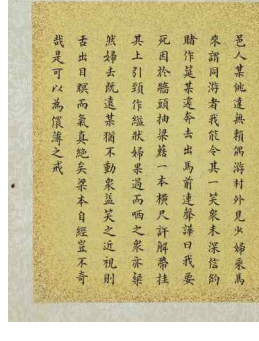 邑人某佻達無賴偶游村外見少婦乘馬
來謂同游者我能令其一笑衆未深信約
賭作筵某遽奔去出馬前連聲譁曰我要
死因於牆頭抽梁藍一本橫尺許解帶挂
其上引頸作縊狀婦果過而哂之衆亦粲
然婦去既遠某猶不動衆益笑之近視則
舌出目瞑而氣真絕矣梁本自經豈不奇
哉是可以為儇薄之戒